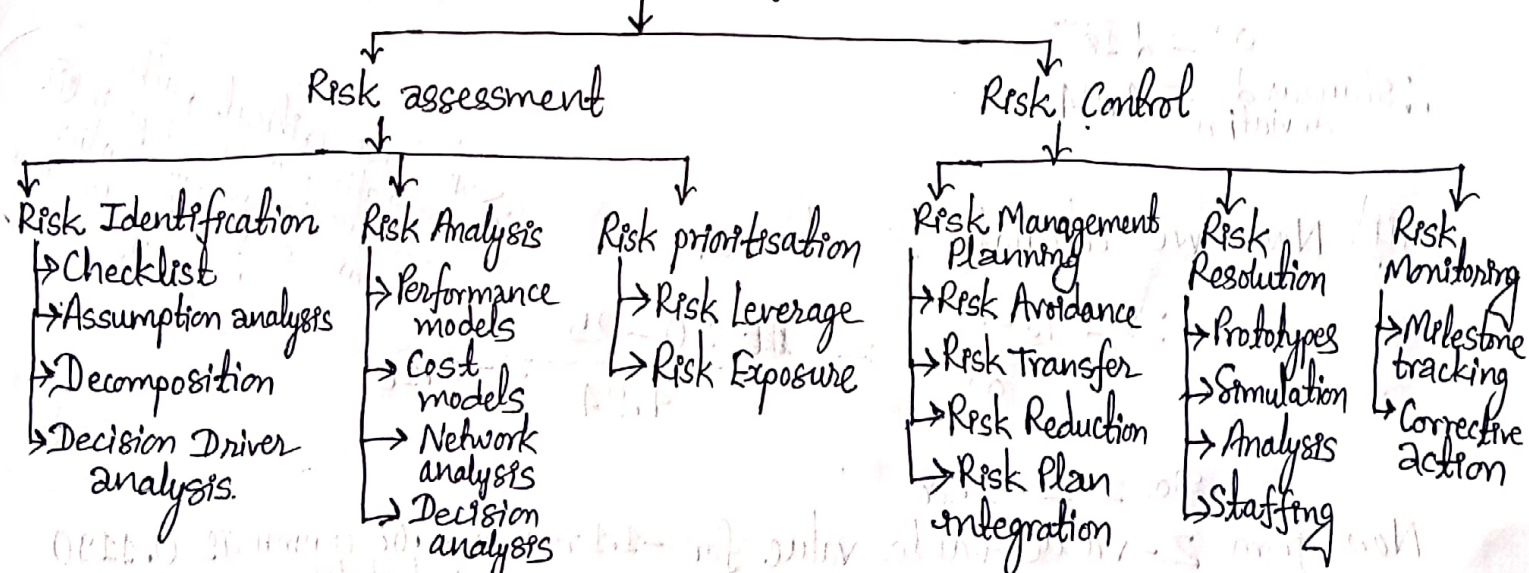 Risk assessment
Risk Control
Risk Identification
Checklist
Assumption analysis
Decomposition
Decision Driver
analysis.
Risk Analysis
Performance
models
Cost
models
Network
analysis
Decision
analysis
Risk prioritisation
Risk Leverage
Risk Exposure
Risk Management
Planning
Risk Avoidance
Risk Transfer
Risk Reduction
Risk Plan
integration
Risk
Resolution
Prototypes
Simulation
Analysis
Staffing
Risk
Monitoring
Milestone
tracking
Corrective
action